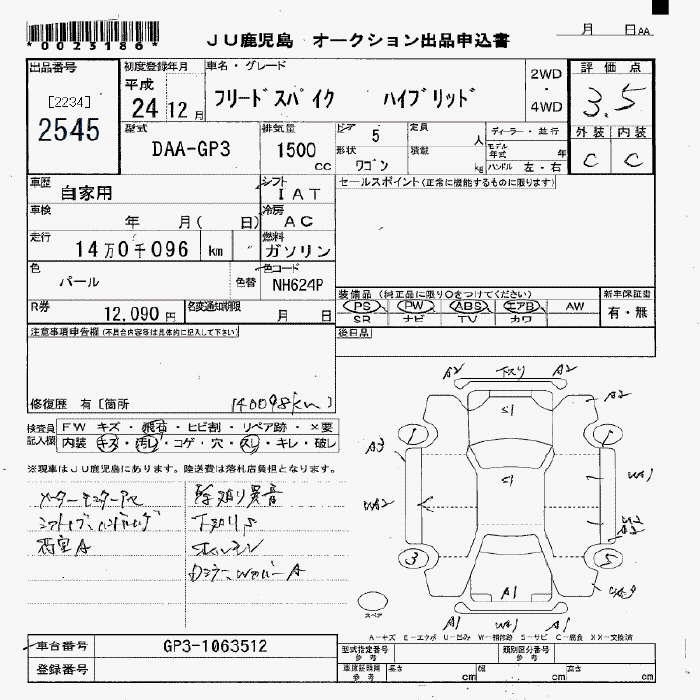 *0025186*
JU鹿児島 オークション出品申込書
月 日AA
出品番号
[2234]
2545
初度登録年月
平成
24 12 月
車名・グレード
フリードスパイク ハイブリッド
2WD
・
4WD
評価点
3.5
外装 内装
C C
型式
DAA-GP3
排気量
1500
cc
ドア 5
定員 人
形状 ワゴン
積載 kg
ディーラー・並行
モデル年式 年
ハンドル 左・右
車歴
自家用
シフト
IAT
セールスポイント(正常に機能するものに限ります)
車検
年 月( 日)
冷房
AC
走行
14万0千096 km
燃料
ガソリン
色
パール
色替
色コード
NH624P
装備品(純正品に限り○をつけてください)
新車保証書
PS PW ABS エアB AW
SR ナビ TV カワ
有・無
R券
12,090円
名変通知期限
月 日
後日品
注意事項申告欄(不具合内容等は具体的に記入して下さい)
修復歴 有[箇所
(140098km)
検査員記入欄
FW キズ・飛石・ヒビ割・リペア跡・×要
内装・キズ・汚レ・コゲ・穴・スレ・キレ・破レ
※現車はJU鹿児島にあります。陸送費は落札店負担となります。
A2 下スリ A2
S1
A2
1 1
A3
S1
W1
W2
3 5
A1
A1 W1 A1
スペア
A-キズ E-エクボ U-凹み W-補修跡 S-サビ C-腐食 XX-交換済
車台番号
GP3-1063512
登録番号
型式指定番号
参考
類別区分番号
参考
車庫証明用
参考
長さ cm
幅 cm
高さ cm